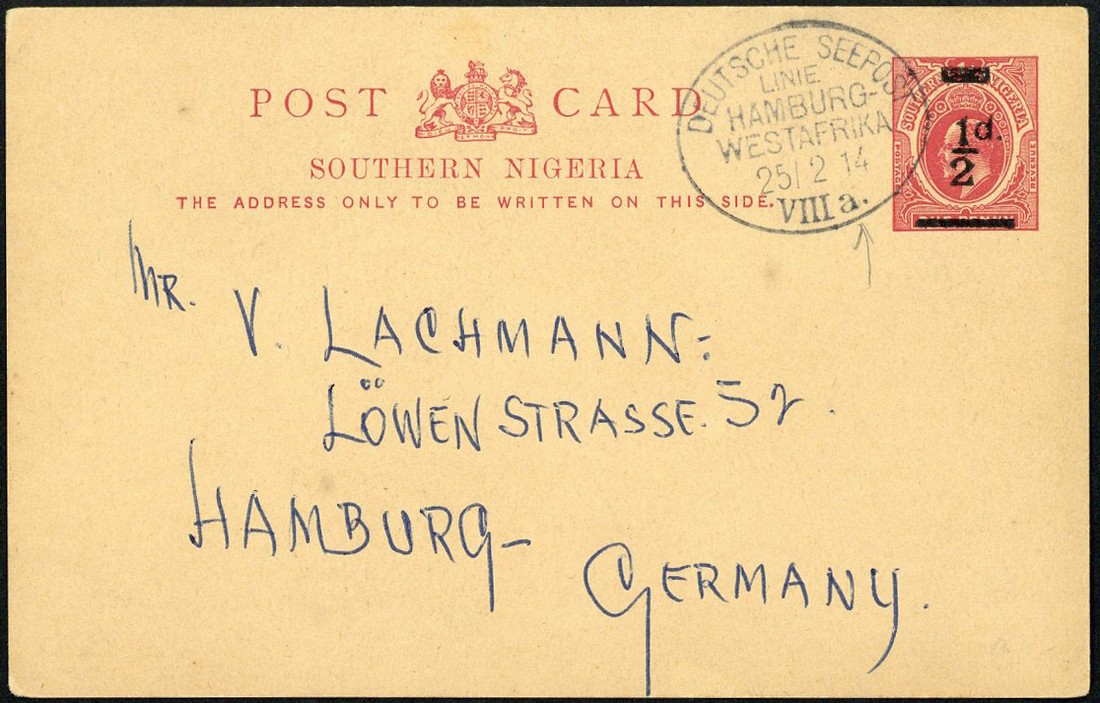 POST CARD
SOUTHERN NIGERIA
THE ADDRESS ONLY TO BE WRITTEN ON THIS SIDE.
DEUTSCHE SEEPOST
LINIE
HAMBURG-
WESTAFRIKA
25/2 14
VIII a.
SOUTHERN NIGERIA
POSTAGE
REVENUE
½d.
ONE PENNY
Mr.
V. LACHMANN:
LÖWEN STRASSE. 52.
HAMBURG-
GERMANY.